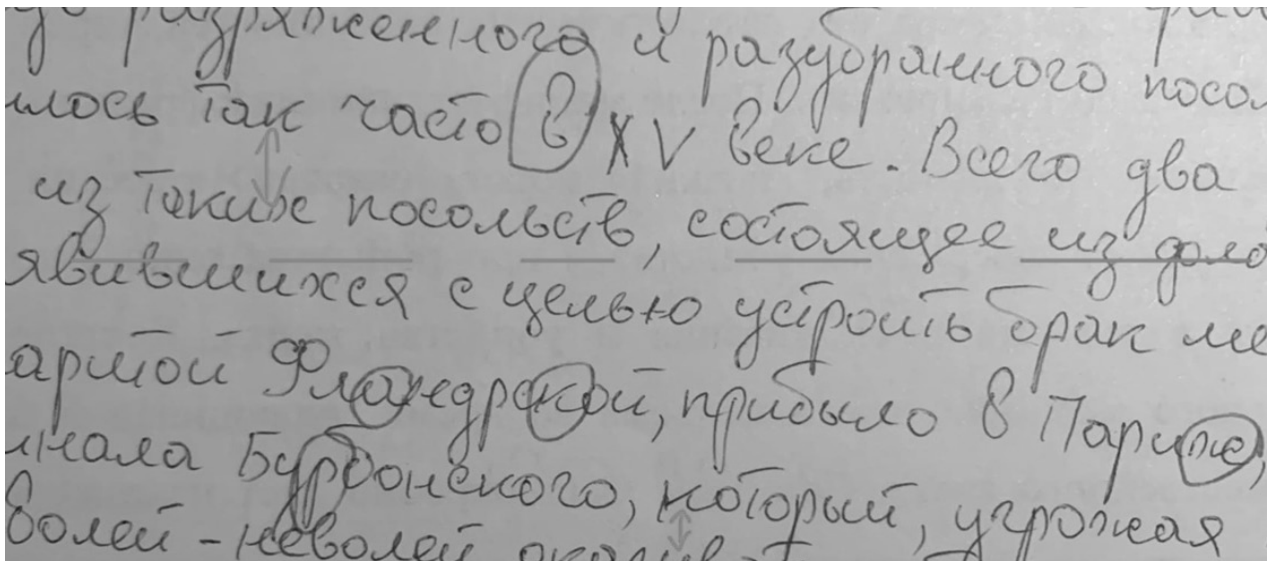 разряженного и разубранного посо
лось так часто в XV веке. Всего два
из таких посольств, состоящее из
явившихся с целью устроить брак ме
аритой Фландрской, прибыло в Париж,
инала Бурбонского, который, угрожая
волей-неволей